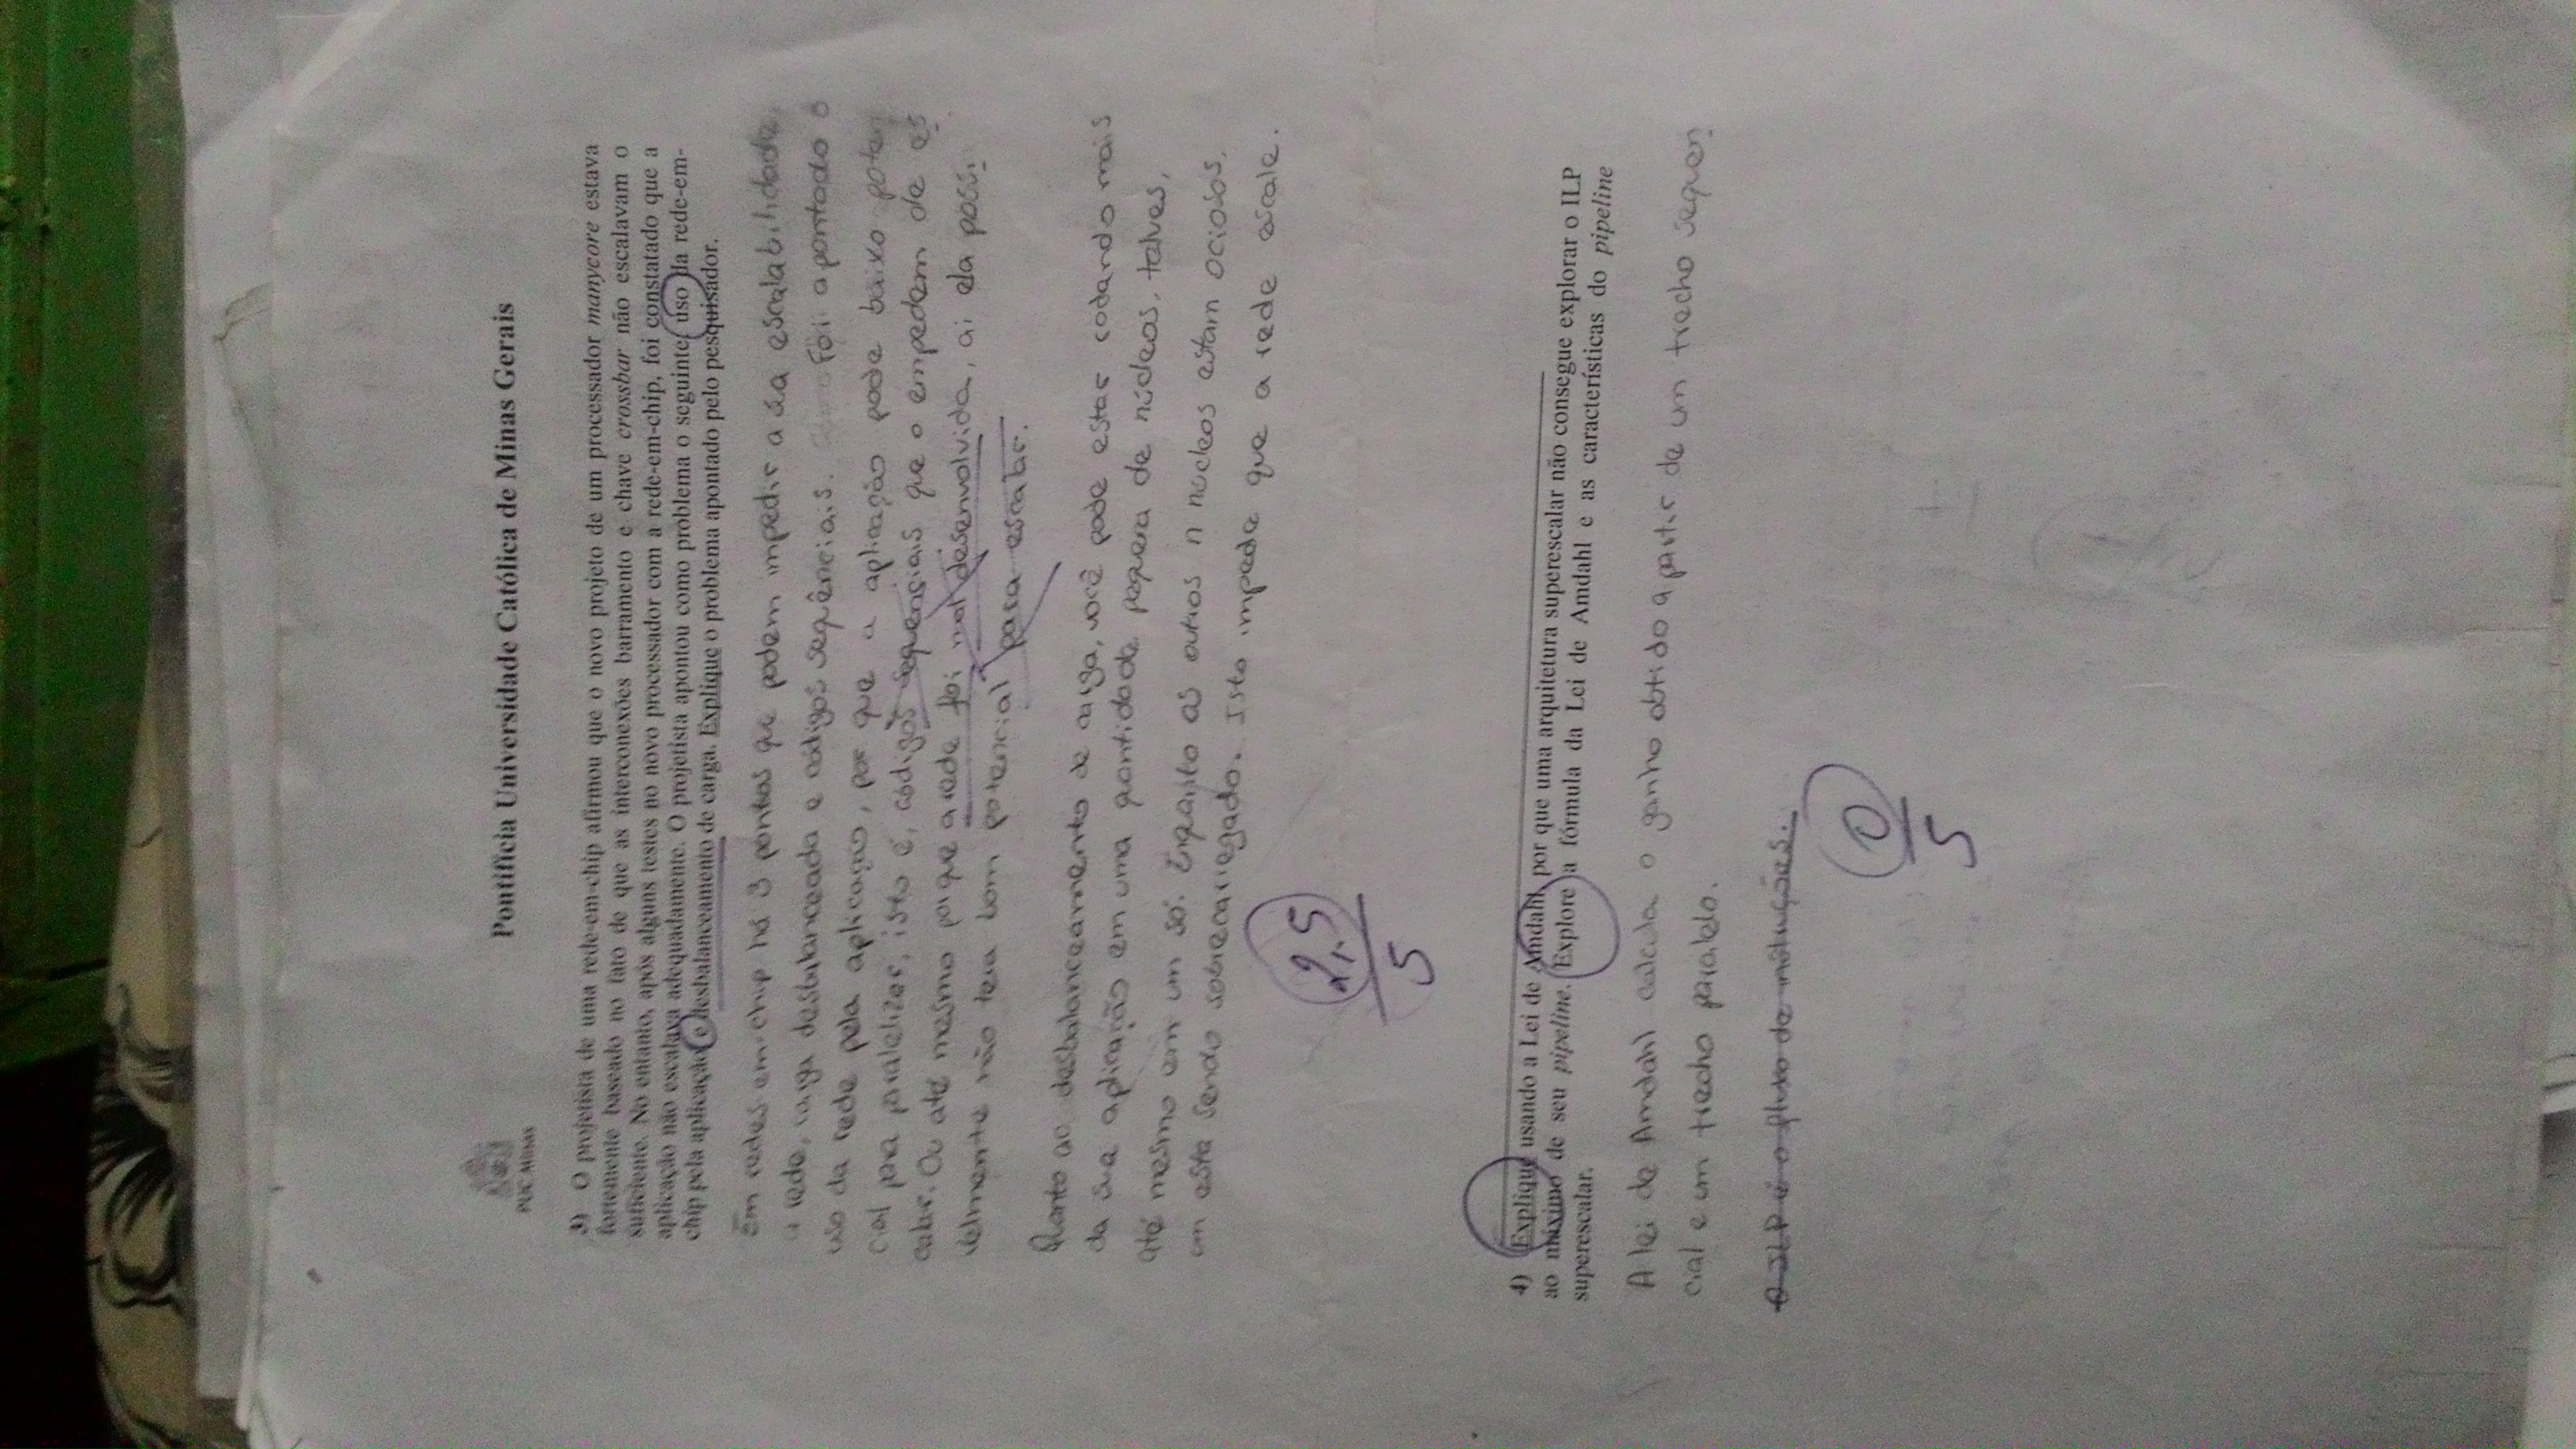 PUC Minas
Pontifícia Universidade Católica de Minas Gerais
3) O projetista de uma rede-em-chip afirmou que o novo projeto de um processador manycore estava
fortemente baseado no fato de que as interconexões barramento e chave crossbar não escalavam o
suficiente. No entanto, após alguns testes no novo processador com a rede-em-chip, foi constatado que a
aplicação não escalava adequadamente. O projetista apontou como problema o seguinte: uso da rede-em-
chip pela aplicação e desbalanceamento de carga. Explique o problema apontado pelo pesquisador.
Em redes-em-chip há 3 pontos que podem impedir a sua escalabilidade,
a rede, carga desbalanceada e códigos sequênciais. foi apontado o
uso da rede pela aplicação, por que a aplicação pode baixo poten
cial para paralelizar, isto é, códigos sequenciais que o empedem de es
calar. Ou até mesmo porque a rede foi mal desenvolvida, ai ela possi
velmente não tera bom potencial para escalar.
Quanto ao desbalanceamento de carga, você pode estar rodando mais
da sua aplicação em uma quantidade pequena de núcleos, talves,
até mesmo em um só. Enquanto os outros n núcleos estam ociosos,
um esta sendo sobrecarregado. Isto impede que a rede escale.
2,5
5
4) Explique usando a Lei de Amdahl, por que uma arquitetura superescalar não consegue explorar o ILP
ao máximo de seu pipeline. Explore a fórmula da Lei de Amdahl e as características do pipeline
superescalar.
A lei de Amdahl calcula o ganho obtido a partir de um trecho sequen
cial e um trecho paralelo.
O ILP é o fluxo de
0
5